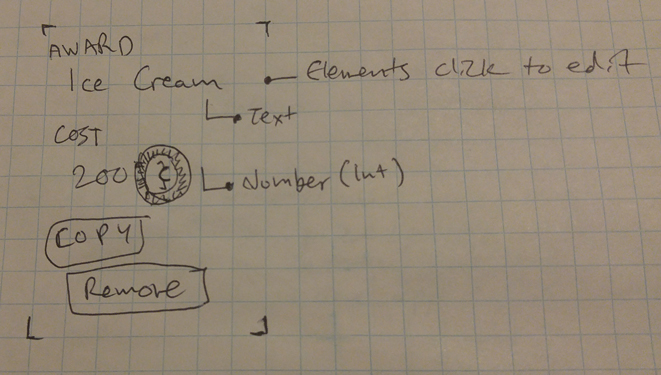 AWARD
Ice Cream
Elements click to edit
Text
COST
200
Number (Int)
COPY
Remove